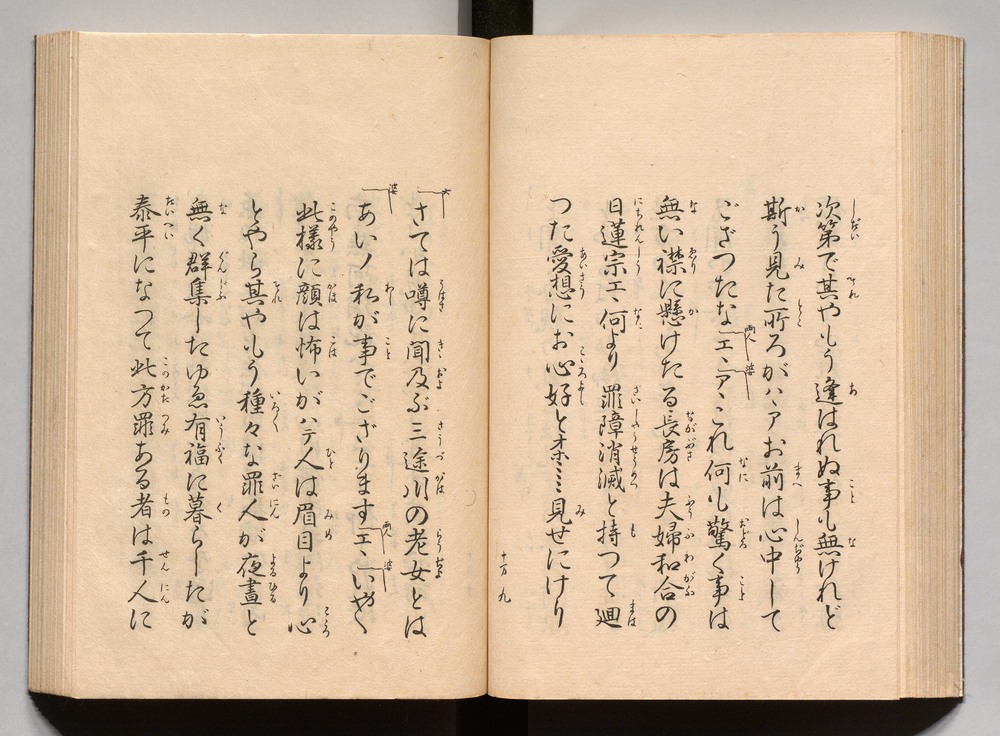 次第で其やもう逢はれぬ事も無けれど
斯う見た所ろがハアお前は心中して
ござつたな 両人 エヽ 婆 アヽこれ何も驚く事は
無い襟に懸けたる長房は夫婦和合の
日蓮宗エヽ何より罪障消滅と持つて廻
つた愛想にお心好とオホヽヽヽ見せにけり
十万 九
六 さては噂に聞及ぶ三途川の老女とは
婆 あい〳〵私が事でござります 両人 エヽ 婆 いや〳〵
此様に顔は怖いがハテ人は眉目より心
とやら其やもう種々な罪人が夜晝と
無く群集したゆゑ有福に暮らしたが
泰平になつて此方罪ある者は千人に